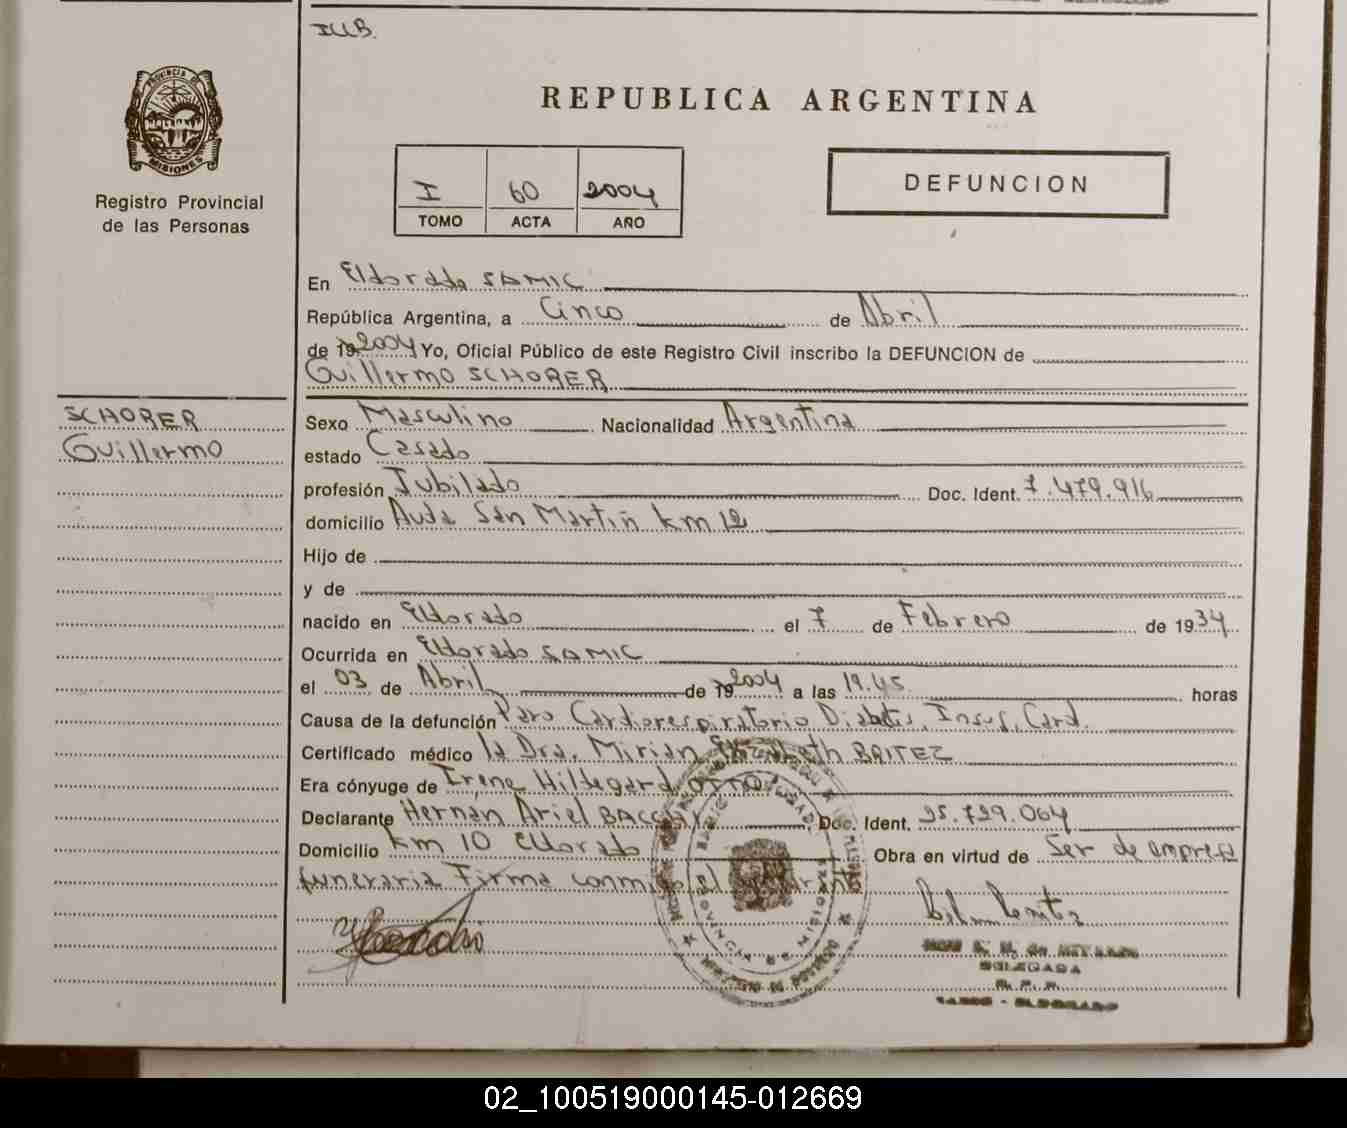 ILLB.
PROVINCIA DE
MISIONES
Registro Provincial
de las Personas
REPUBLICA ARGENTINA
I 60 2004
TOMO ACTA AÑO
DEFUNCION
En Eldorado SAMIC
República Argentina, a Cinco de Abril
de 19 2004 Yo, Oficial Público de este Registro Civil inscribo la DEFUNCION de
Guillermo SCHORER
SCHORER
Guillermo
Sexo Masculino Nacionalidad Argentina
estado Casado
profesión Jubilado Doc. Ident. 7.479.916
domicilio Avda San Martin km 12
Hijo de
y de
nacido en Eldorado el 7 de Febrero de 1934
Ocurrida en Eldorado SAMIC
el 03 de Abril de 19 2004 a las 19.45 horas
Causa de la defunción Paro Cardiorespiratorio Diabetes, Insuf. Card.
Certificado médico la Dra. Mirian Elizabeth BRITEZ
Era cónyuge de Irene Hildegard OTTO
Declarante Hernán Ariel Doc. Ident. 25.729.064
Domicilio km 10 Eldorado Obra en virtud de Ser de empresa
funeraria Firma conmigo el declarante
PROVINCIA DE MISIONES
DELEGADA
R. P. P.
- ELDORADO
02_100519000145-012669